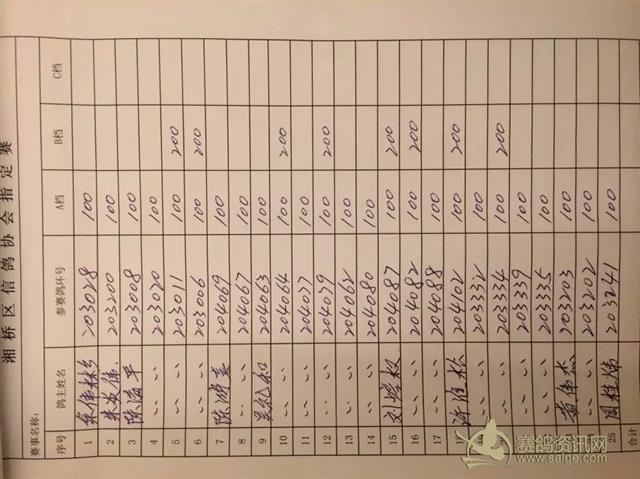 湘桥区信鸽协会指定赛
赛事名称:
序号 鸽主姓名 参赛鸽环号 A档 B档 C档
1 203028 100
2 203200 100
3 陈海平 203008 100
4 〃 203020 100
5 〃 203011 100 200
6 〃 203006 100 200
7 204069 100
8 〃 204067 100
9 204063 100
10 〃 204064 100 200
11 〃 204077 100
12 〃 204059 100 200
13 〃 204062 100
14 〃 204080 100
15 204087 100 200
16 〃 204082 100 200
17 〃 204088 100
许佳栋 204102 100 200
〃 203332 100
〃 203334 100 200
〃 203339 100
〃 203335 100
黄伟杰 203203 100
〃 203202 100
25 周佳伟 203241 100
合计
赛鸽资讯网
www.saige.com